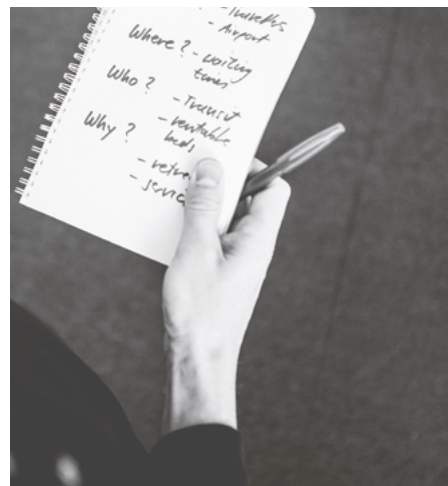 - Travellers
- Airport
Where? - waiting
times
Who?
- Transit
- rentable
beds
Why?
- retre
- servic